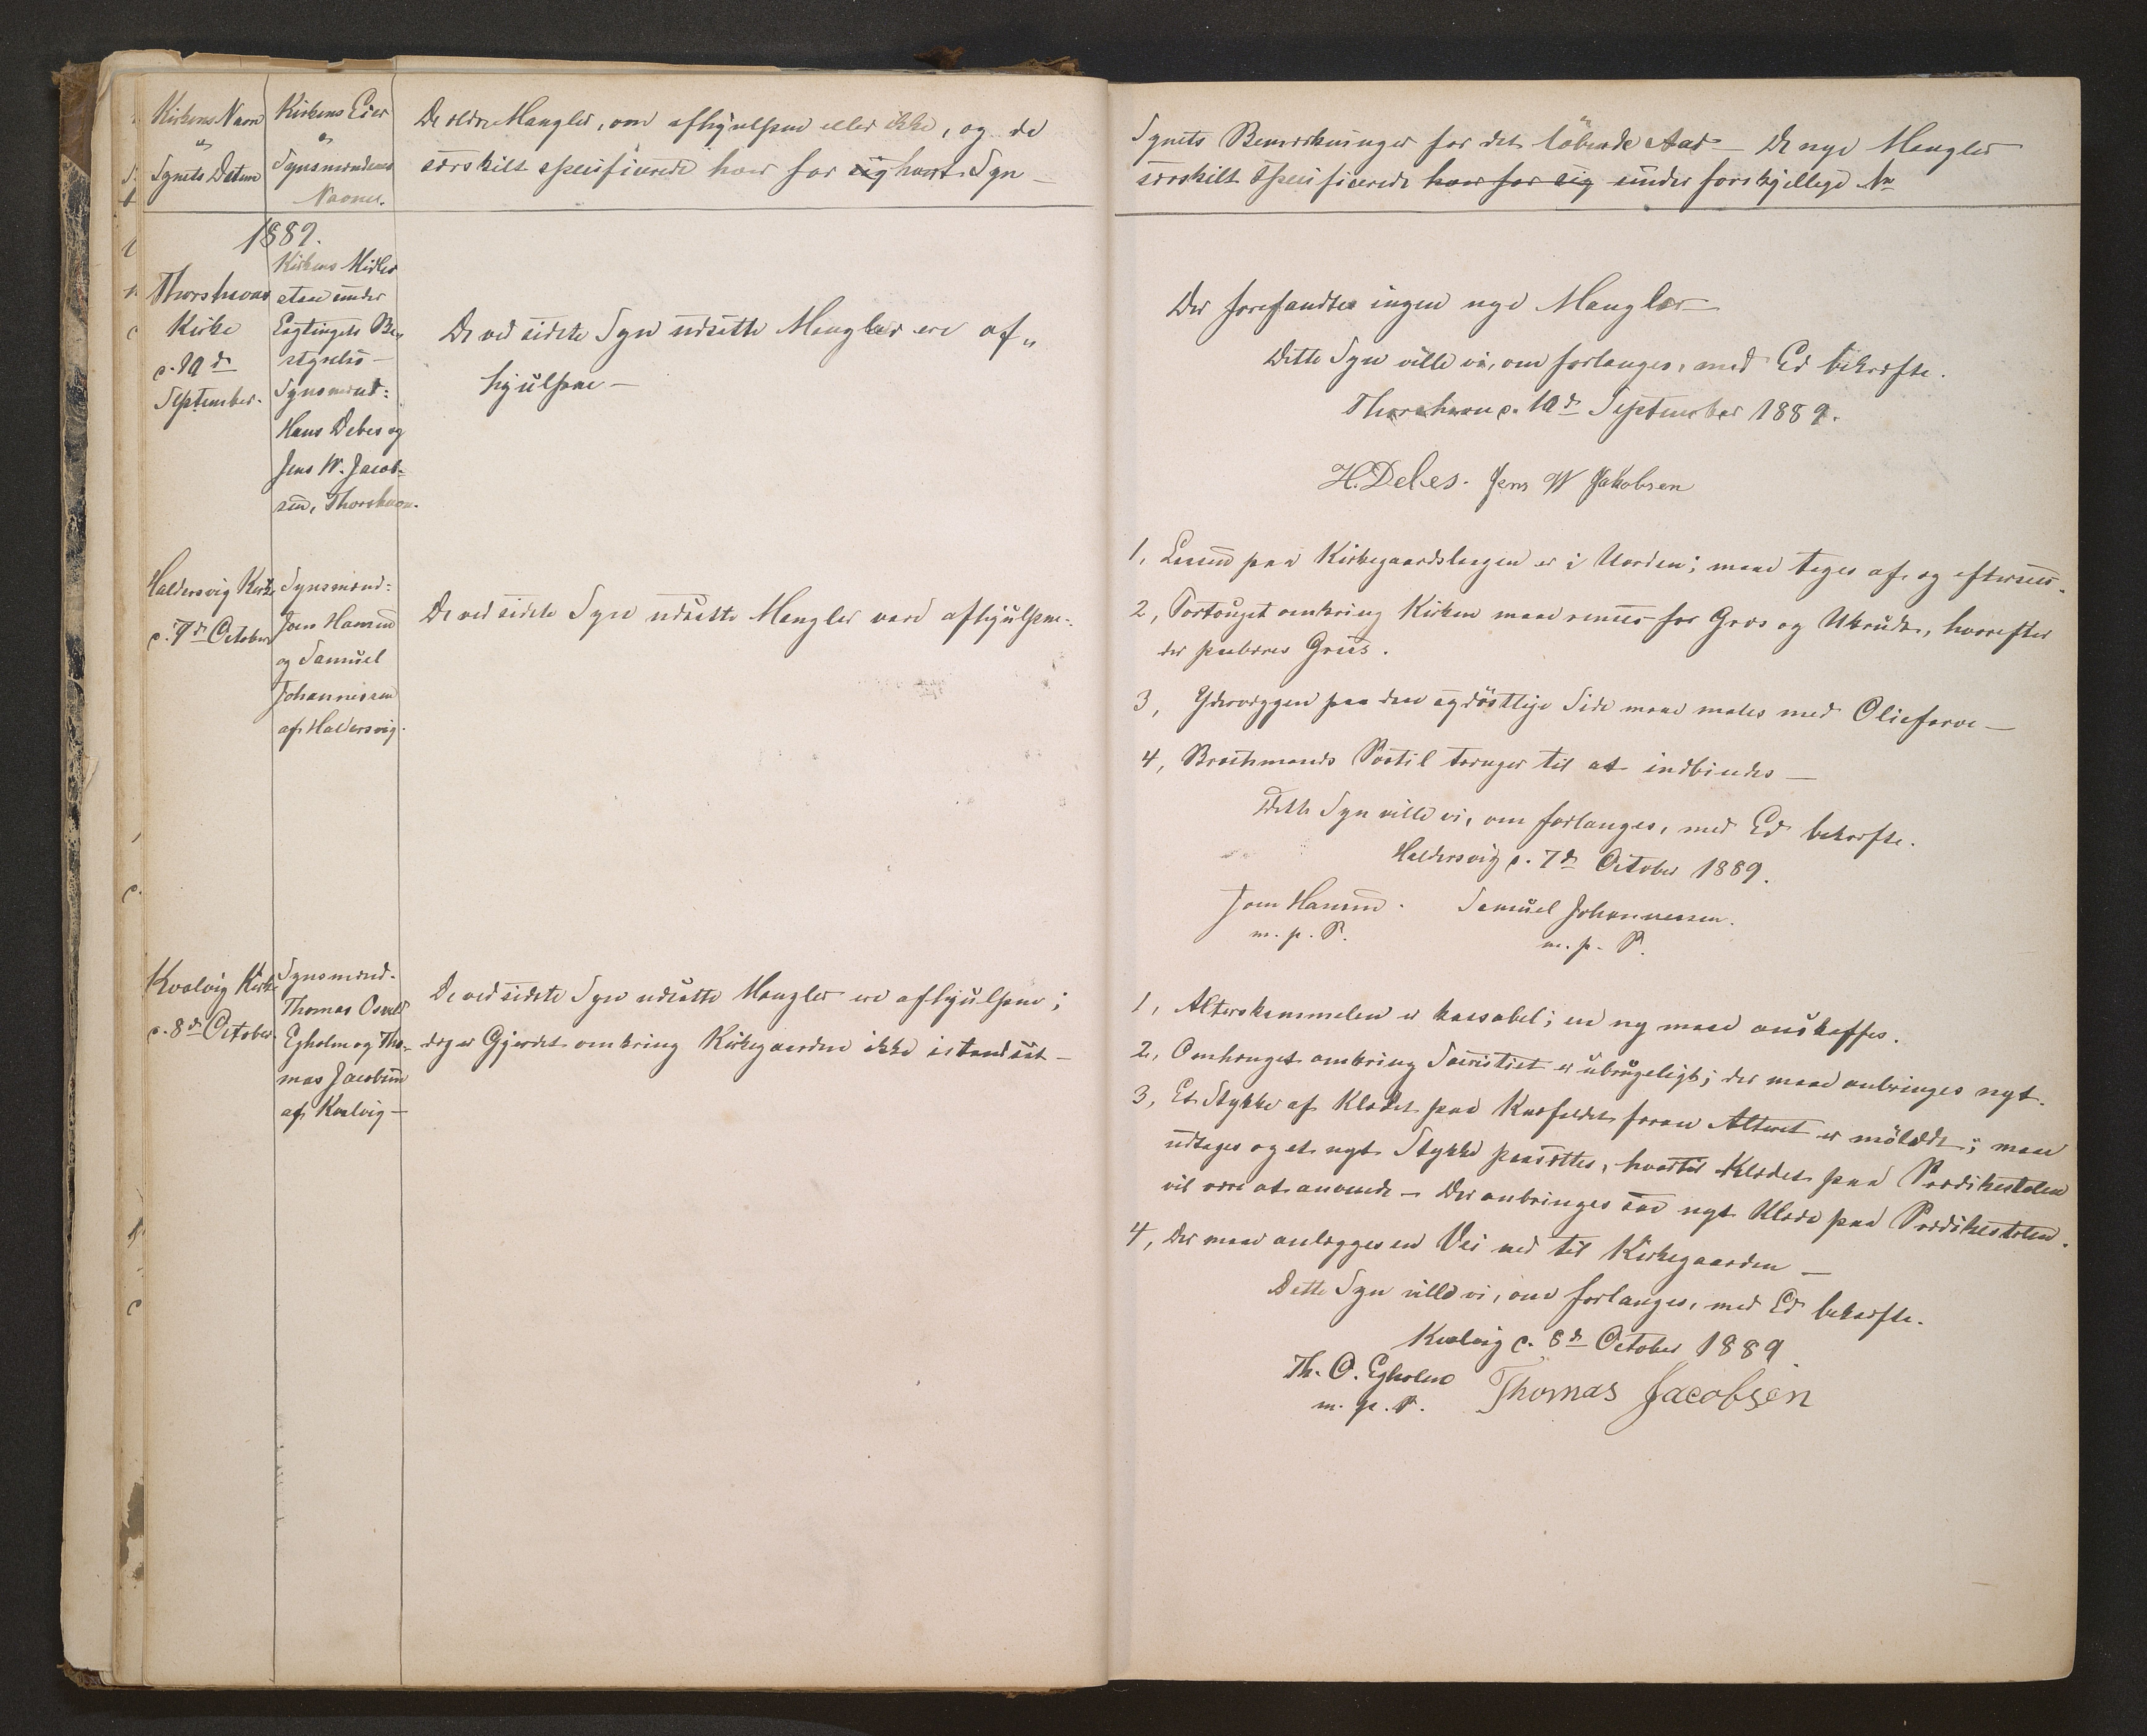 Kirkens Navn
og
Synets Datum
Kirkens Eier
og
Synsmændenes
Navne.
De ældre Mangler, om afhjulpne eller ikke, og de
særskilt specificerede hver for sig hvert Syn —
1889.
Thorshavns
Kirke
d. 10d
September.
Kirkens Midler
staae under
Lagtingets Be„
styrelse —
Synsmænd:
Hans Debes og
Jens W. Jacob-
sen, Thorshavn.
De ved sidste Syn udsatte Mangler ere af„
hjulpne —
Haldersvig Kirke
d. 7d October
Synsmænd:
Joen Hansen
og Samuel
Johannessen
af Haldersvig.
De ved sidste Syn udsatte Mangler vare afhjulpne.
Kvalvig Kirke
d. 8d October.
Synsmænd.
Thomas Osvald
Egholm og Tho-
mas Jacobsen
af Kvalvig —
De ved sidste Syn udsatte Mangler ere afhjulpne;
dog er Gjerdet omkring Kirkegaarden ikke istandsat —
Synets Bemærkninger for det løbende Aar — De nye Mangler
særskilt specificerede hver for sig under forskjellige No
Der forefandtes ingen nye Mangler —
Dette Syn ville vi, om forlanges, med Ed bekræfte.
Thorshavn d. 10d September 1889.
H. Debes. Jens W Jakobsen
1, Laasen paa Kirkegaardslaagen er i Uorden; maae tages af og eftersees.
2, Fortouget omkring Kirken maae renses for Græs og Ukrudt, hvorefter
der paabæres Gruus.
3, Ydervæggen paa den sydøstlige Side maae males med Oliefarve —
4, Brochmands Postil trænger til at indbindes —
Dette Syn ville vi, om forlanges, med Ed bekræfte.
Haldersvig d. 7d October 1889.
Joen Hansen. Samuel Johannessen.
m. p. P. m. p. P.
1, Alterskammelen er kassabel; en ny maae anskaffes.
2, Omhænget omkring Sacristiet er ubrugeligt; der maae anbringes nyt.
3, Et Stykke af Klædet paa Knæfaldet foran Alteret er mølædt; maae
udtages og et nyt Stykke paasættes, hvortil Klædet paa Prædikestolen
vil være at anvende — Der anbringes saa nyt Klæde paa Prædikestolen.
4, Der maae anlægges en Vei ned til Kirkegaarden —
Dette Syn ville vi, om forlanges, med Ed bekræfte.
Kvalvig d. 8d October 1889.
Th. O. Egholm Thomas Jacobsen
m. p. P.